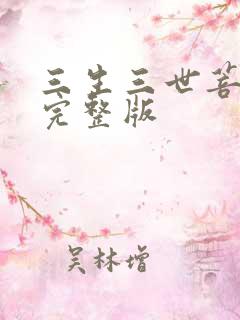 三生三世菩
完整版
吴林增